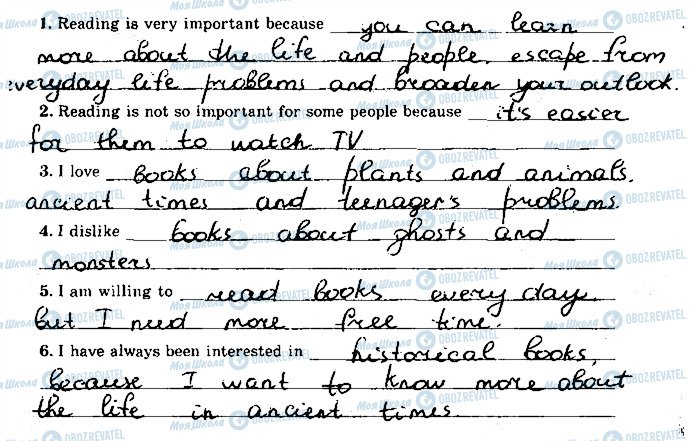 1. Reading is very important because you can learn
more about the life and people, escape from
veryday life problems and broaden your outlook.
2. Reading is not so important for some people because it's easier
for them to watch TV
3. I love books about plants and animals,
ancient times and teenager's problems.
4. I dislike books about ghosts and
monsters
5. I am willing to read books every day
but I need more free time.
6. I have always been interested in historical books,
because I want to know more about
the life in ancient times.